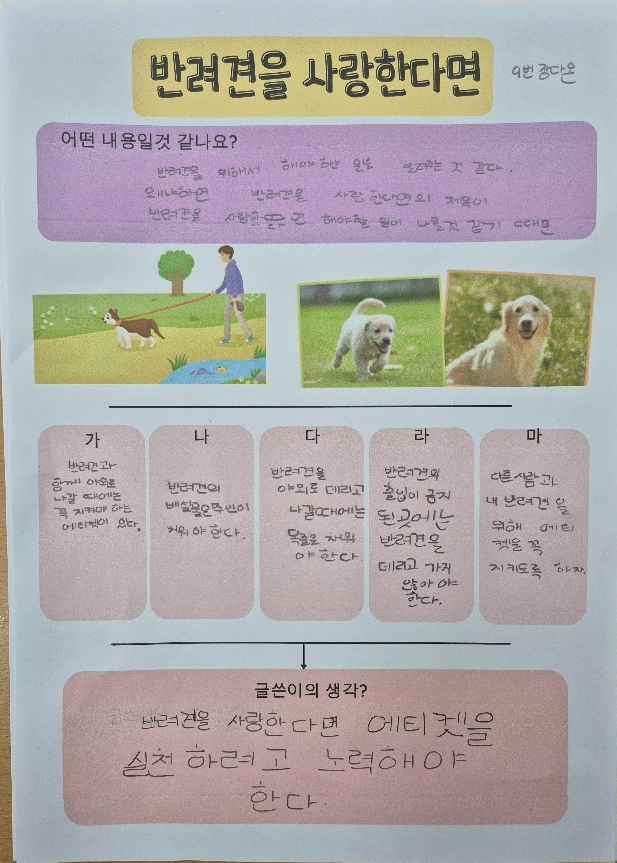 반려견을 사랑한다면
9번 장다온
어떤 내용일것 같나요?
반려견을 위해서 해야하는 일을 알려주는 것 같다.
왜냐하면 반려견을 사랑한다면의 제목이
반려견을 사랑한 면 해야할 일이 나올것 같기 때문
가
반려견과
함께 야외로
나갈 때에는
꼭 지켜야 하는
에티켓이 있다.
나
반려견의
배설물은 주인이
치워야 한다.
다
반려견을
야외로 데리고
나갈때에는
목줄로 채워
야 한다
라
반려견의
출입이 금지
된 곳에는
반려견을
데리고 가지
않아야
한다.
마
다른사람과
내 반려견을
위해 에티
켓을 꼭
지키도록 하자.
글쓴이의 생각?
반려견을 사랑한다면 에티켓을
실천하려고 노력해야
한다.